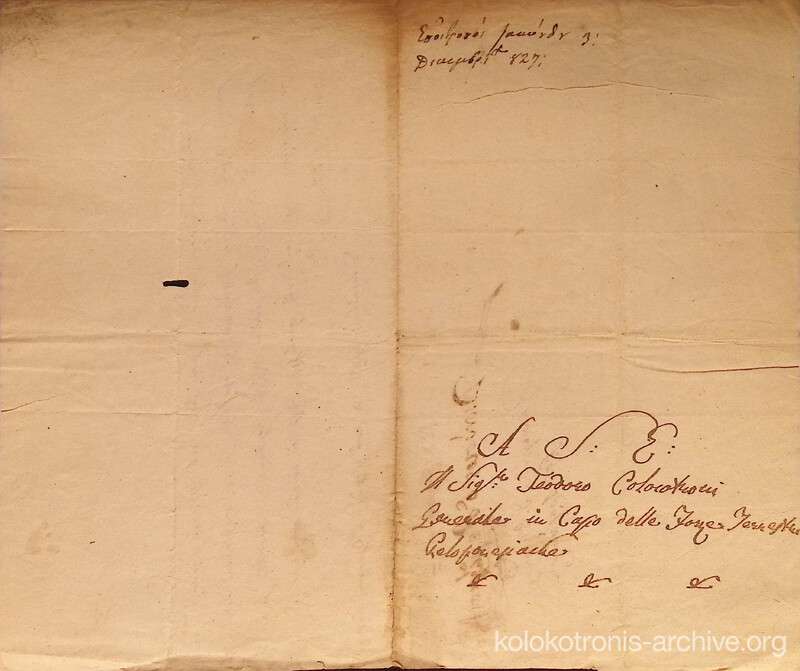 Ἐπίτροποί Ζακύνθȣ 3:
Δικεμβρίȣ 827:
A S: E:
Il Sig:re Teodoro Colocotroni
Generale in Capo delle Forze Terrestri
Peloponesiache
kolokotronis-archive.org